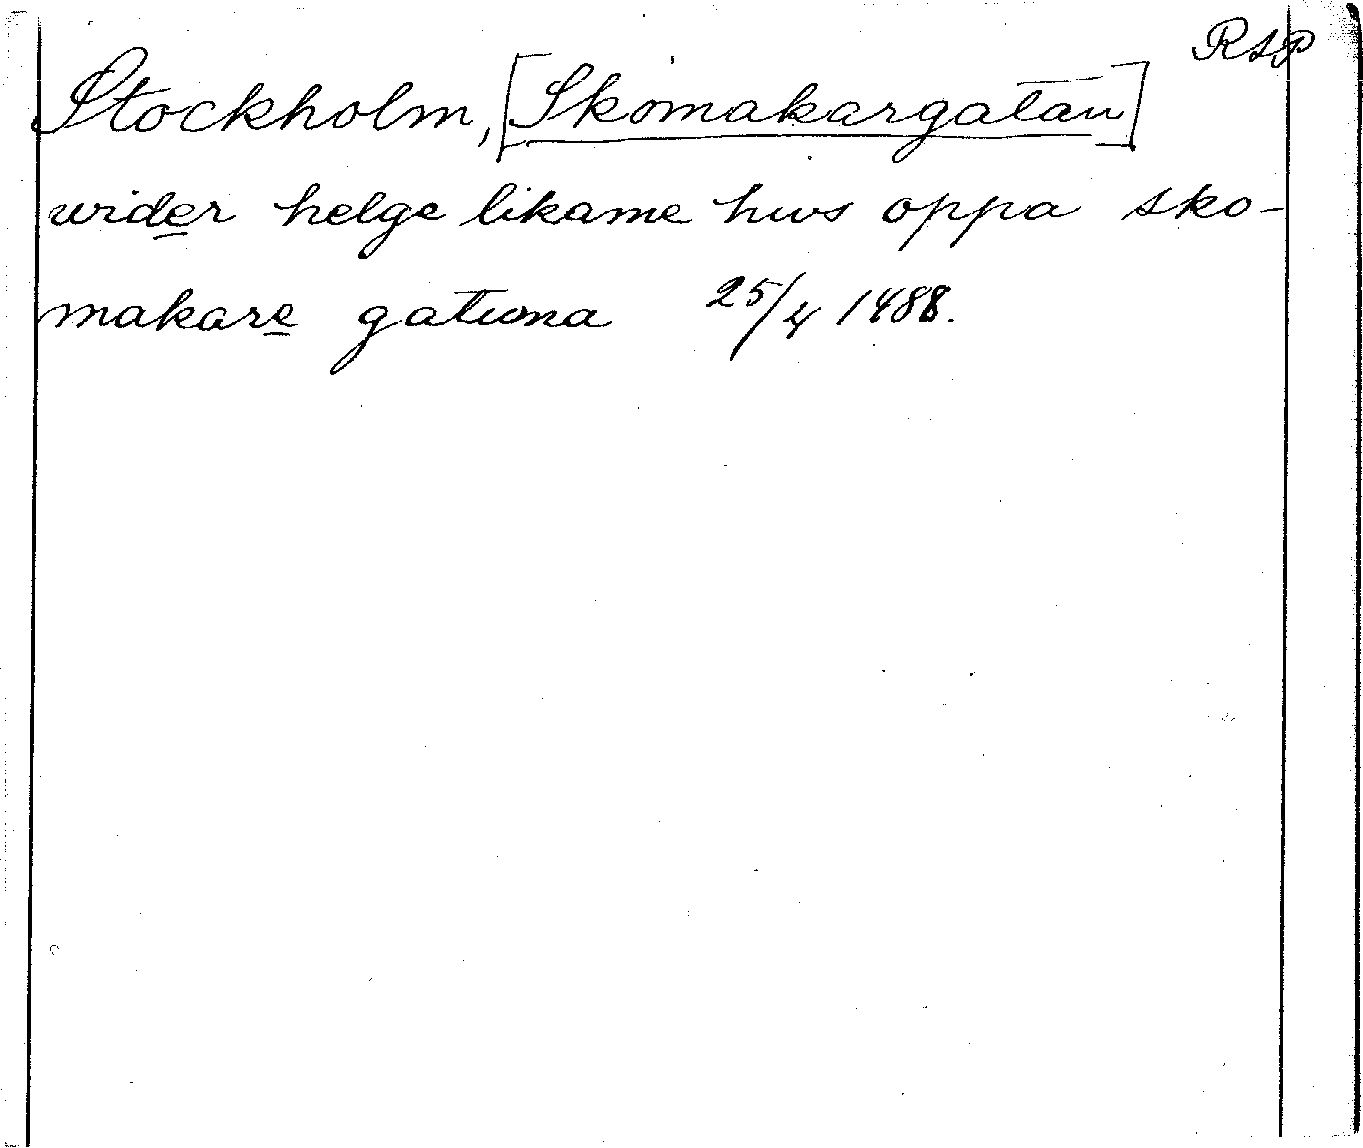 RAP
Stockholm, [Skomakargatan]
wider helge likame hws oppa sko-
makare gatwna 25/4 1488.